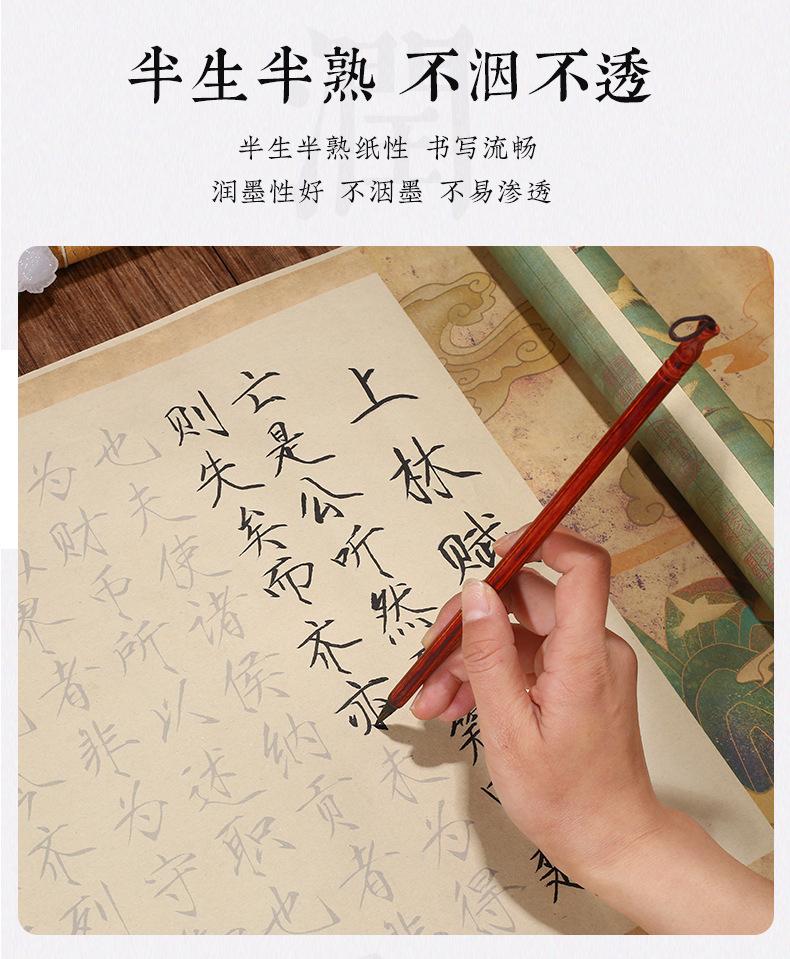 半生半熟 不洇不透
半生半熟纸性 书写流畅
润墨性好 不洇墨 不易渗透
潤
上林赋
亡是公听然
笑
楚
则失矣而齐亦未为得
也夫使诸侯纳贡者非
为财币所以述职也
界者非为守
齐列